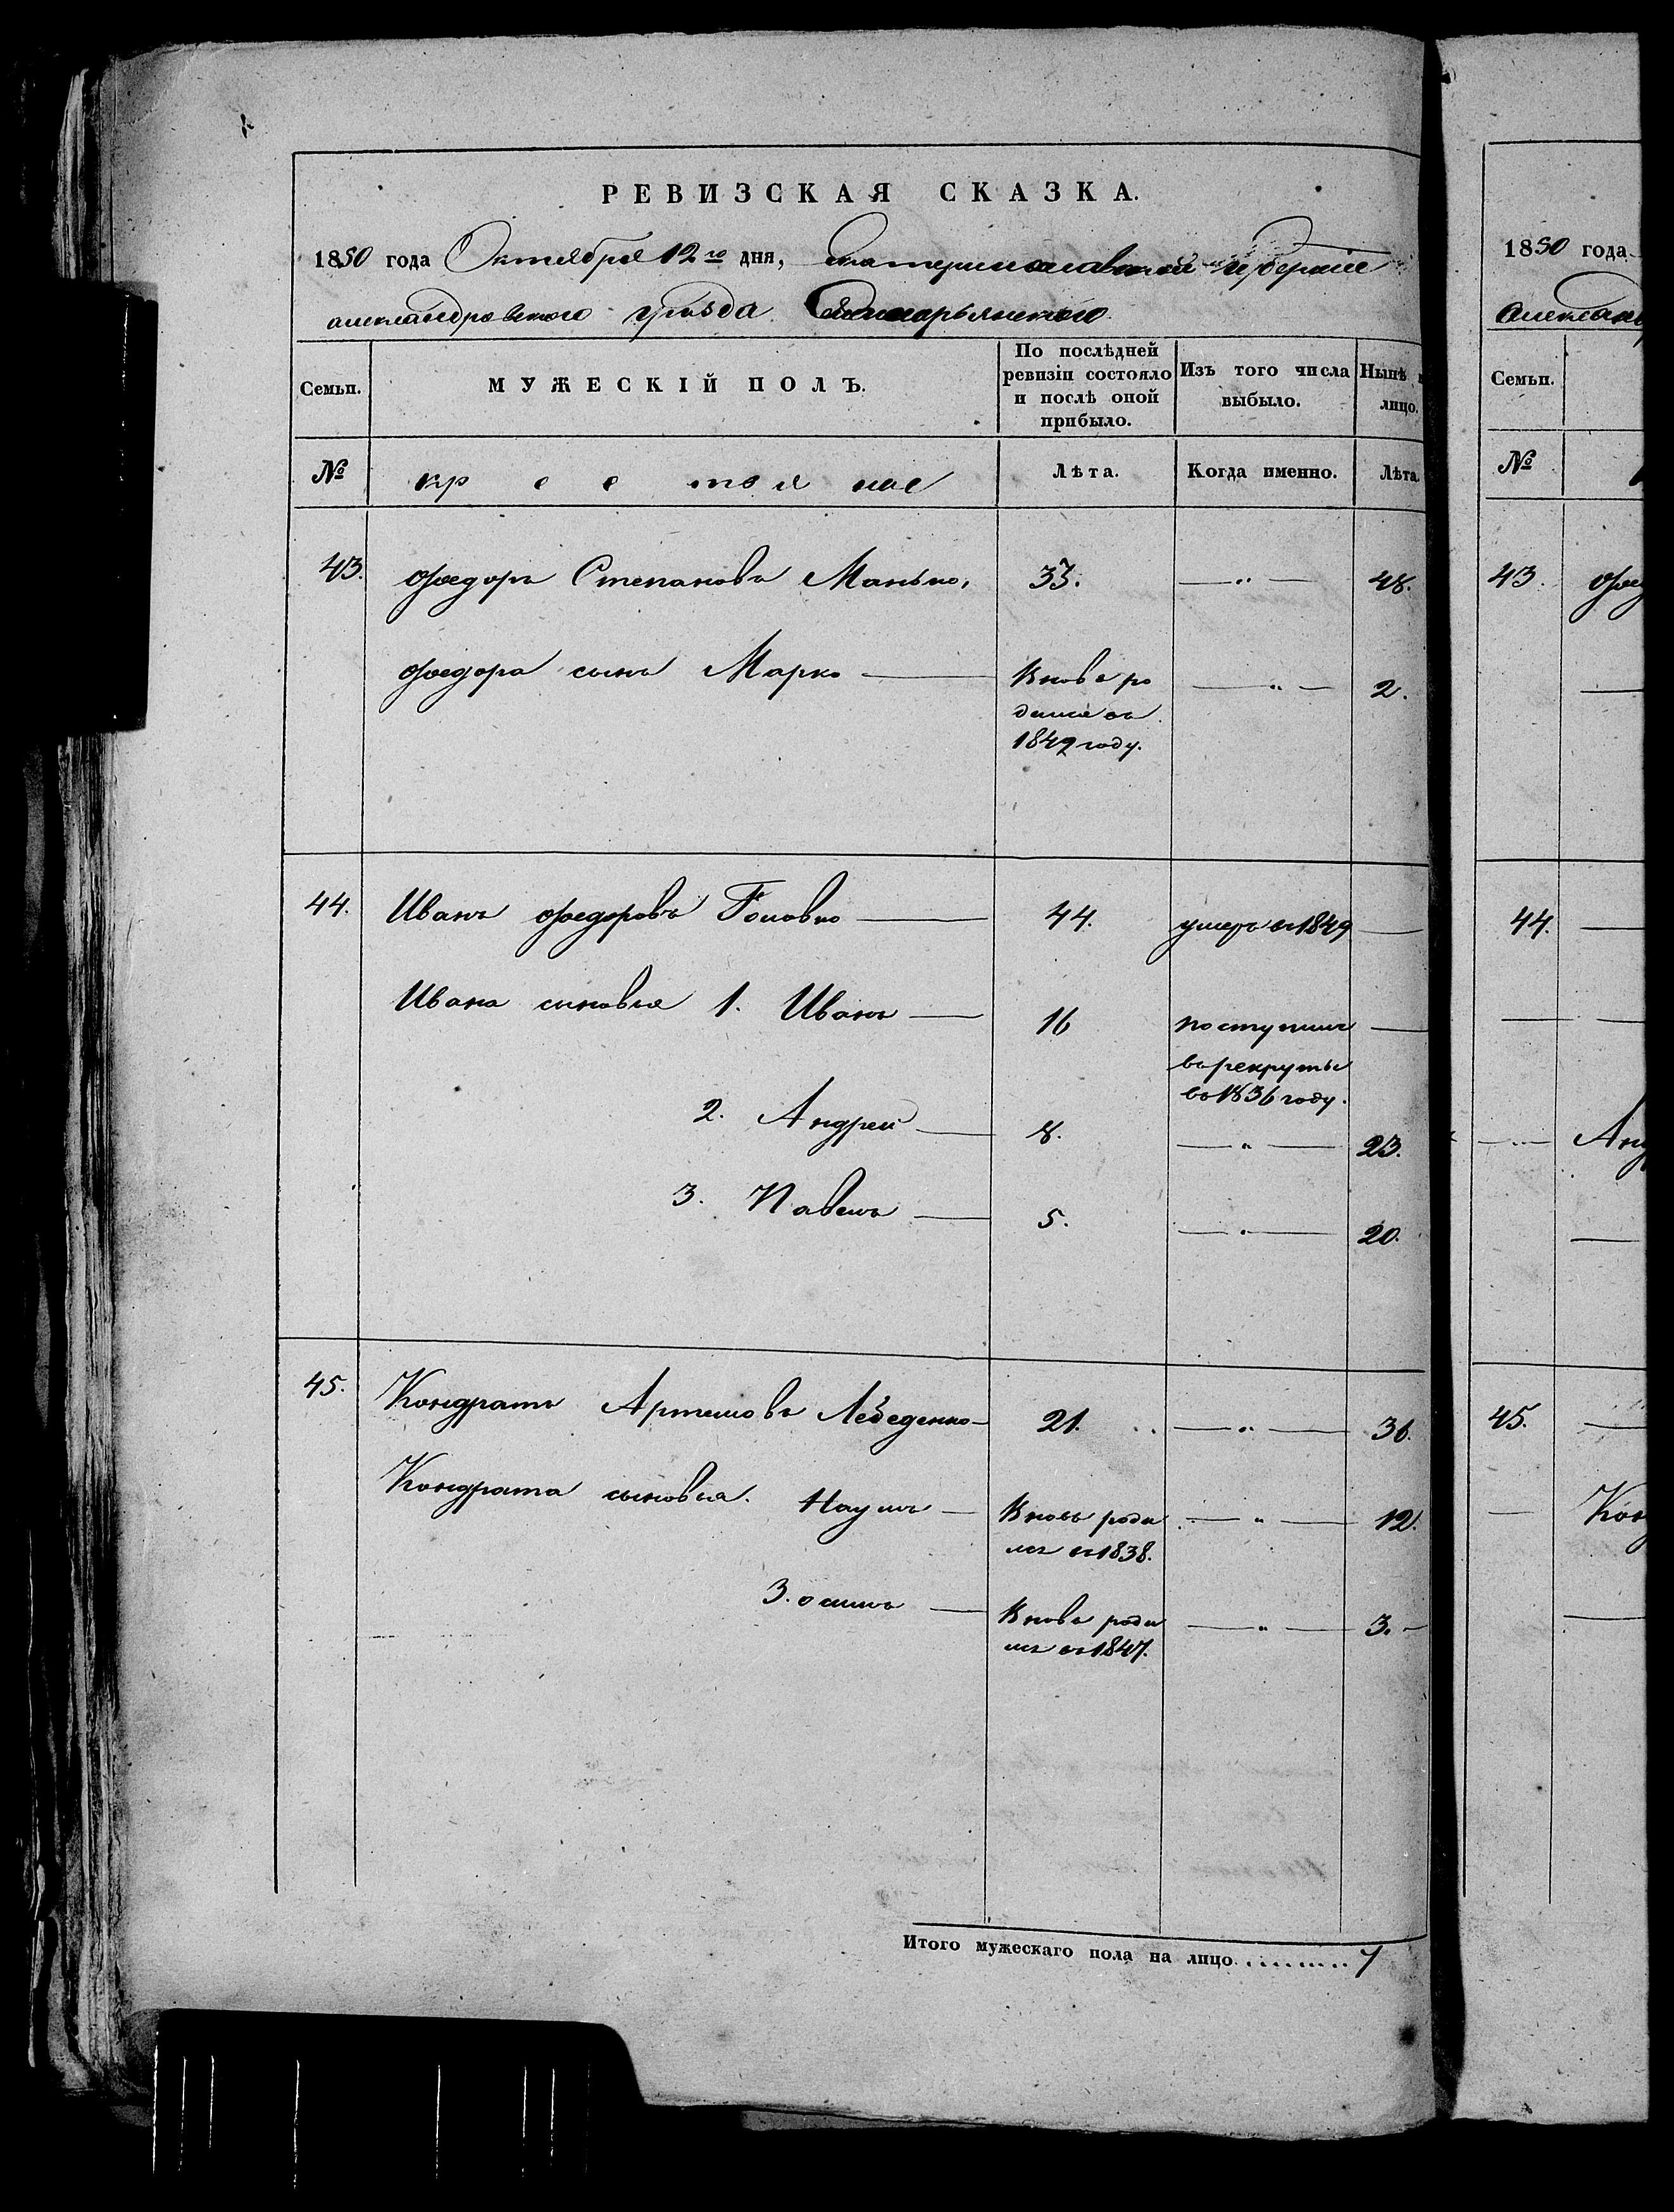 РЕВИЗСКАЯ СКАЗКА.
1850 года Октября 12го дня, Екатеринославской губерніи
александровского уезда
Семьи. МУЖЕСКІЙ ПОЛЪ. По послѣдней ревизіи состояло и послѣ оной прибыло. Изъ того числа выбыло. Нынѣ лицо.
№ крестьяне Лѣта. Когда именно. Лѣта.
43. Федоръ Степановъ Манько, 33. —"— 48.
Федора сынъ Марко — Вновь ро —"— 2.
дился въ
1849 году.
44. Иванъ Федоровъ Головко — 44. умеръ въ 1849 —
Ивана сыновья 1. Иванъ — 16 поступилъ —
въ рекруты
въ 1836 году.
2. Андрей — 8. —"— 23.
3. Павелъ — 5. —"— 20.
45. Кондратъ Артемовъ Лебеденко — 21. —"— 36.
Кондрата сыновья. Наумъ — Вновь роди —"— 12.
лся въ 1838.
3. осипъ — Вновь роди —"— 3. —
лся въ 1847.
Итого мужескаго пола на лицо.......... 7
1850 года
Александ
Семьи.
№
43. Фед
44. —
Анд
45. —
Кон